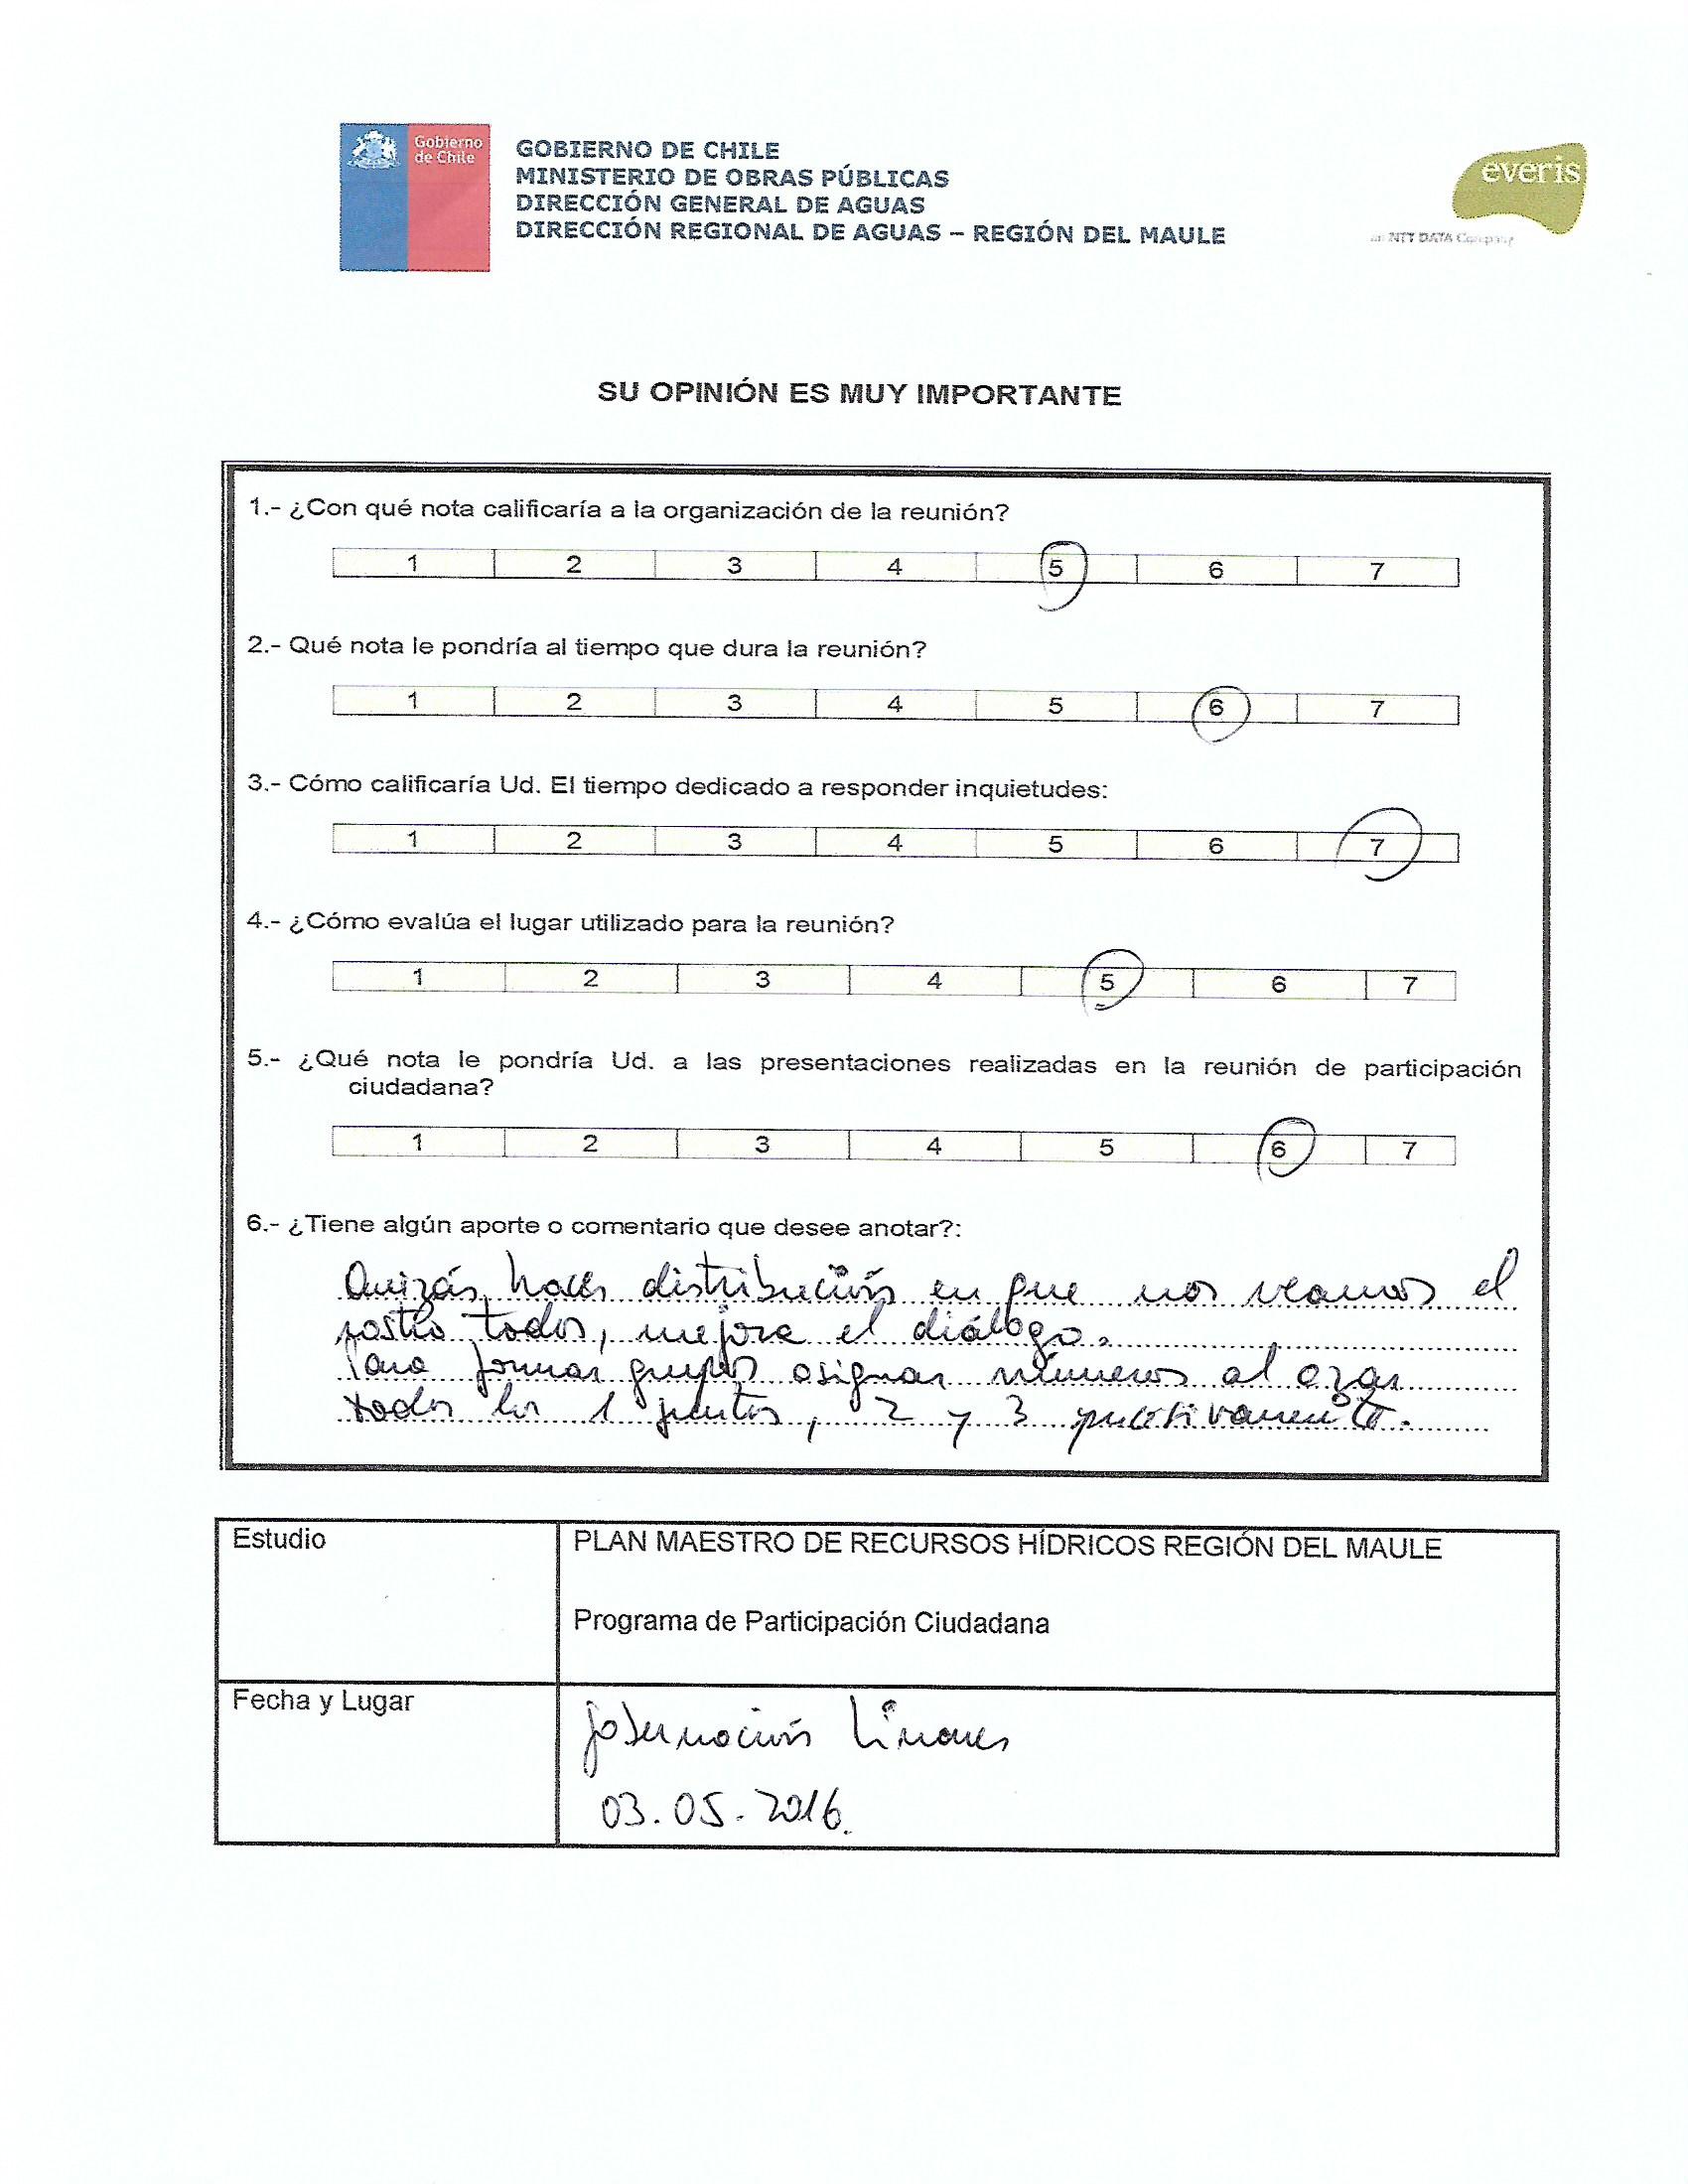 Gobierno
de Chile
GOBIERNO DE CHILE
MINISTERIO DE OBRAS PÚBLICAS
DIRECCIÓN GENERAL DE AGUAS
DIRECCIÓN REGIONAL DE AGUAS – REGIÓN DEL MAULE
everis
an NTT DATA Company
SU OPINIÓN ES MUY IMPORTANTE
1.- ¿Con qué nota calificaría a la organización de la reunión?
1 2 3 4 5 6 7
2.- Qué nota le pondría al tiempo que dura la reunión?
1 2 3 4 5 6 7
3.- Cómo calificaría Ud. El tiempo dedicado a responder inquietudes:
1 2 3 4 5 6 7
4.- ¿Cómo evalúa el lugar utilizado para la reunión?
1 2 3 4 5 6 7
5.- ¿Qué nota le pondría Ud. a las presentaciones realizadas en la reunión de participación
ciudadana?
1 2 3 4 5 6 7
6.- ¿Tiene algún aporte o comentario que desee anotar?:
Quizás hacer distribución en que nos veamos el
rostro todos, mejora el diálogo.
Para formar grupos asignar números al azar
todos los 1 juntos, 2 y 3
Estudio
PLAN MAESTRO DE RECURSOS HÍDRICOS REGIÓN DEL MAULE
Programa de Participación Ciudadana
Fecha y Lugar
Gobernación Linares
03.05.2016.